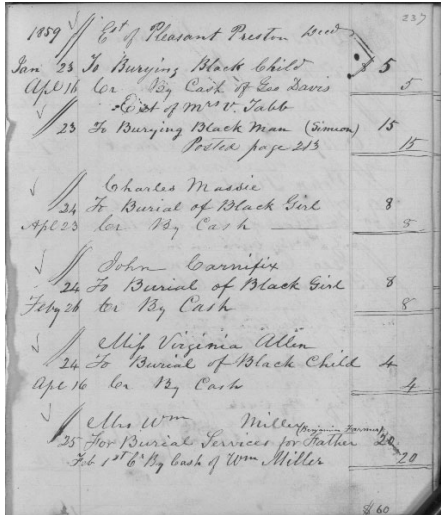 237
1859 Est of Pleasant Preston Decd
Jan 23 To Burying Black Child $ 5
Apl 16 Cr By Cash of Geo Davis 5
Est of Mrs V. Tabb
23 To Burying Black Man (Simeon) 15
Posted page 213 15
Charles Massie
24 To Burial of Black Girl 8
Apl 23 Cr By Cash 8
John Carnifix
24 To Burial of Black Girl 8
Feby 26 Cr By Cash 8
Miss Virginia Allin
24 To Burial of Black Child 4
Apl 16 Cr By Cash 4
Mrs Wm Miller (Benjamin Farrar)
25 For Burial Services for Father 20
Feb 1st Cr By Cash of Wm Miller 20
$60